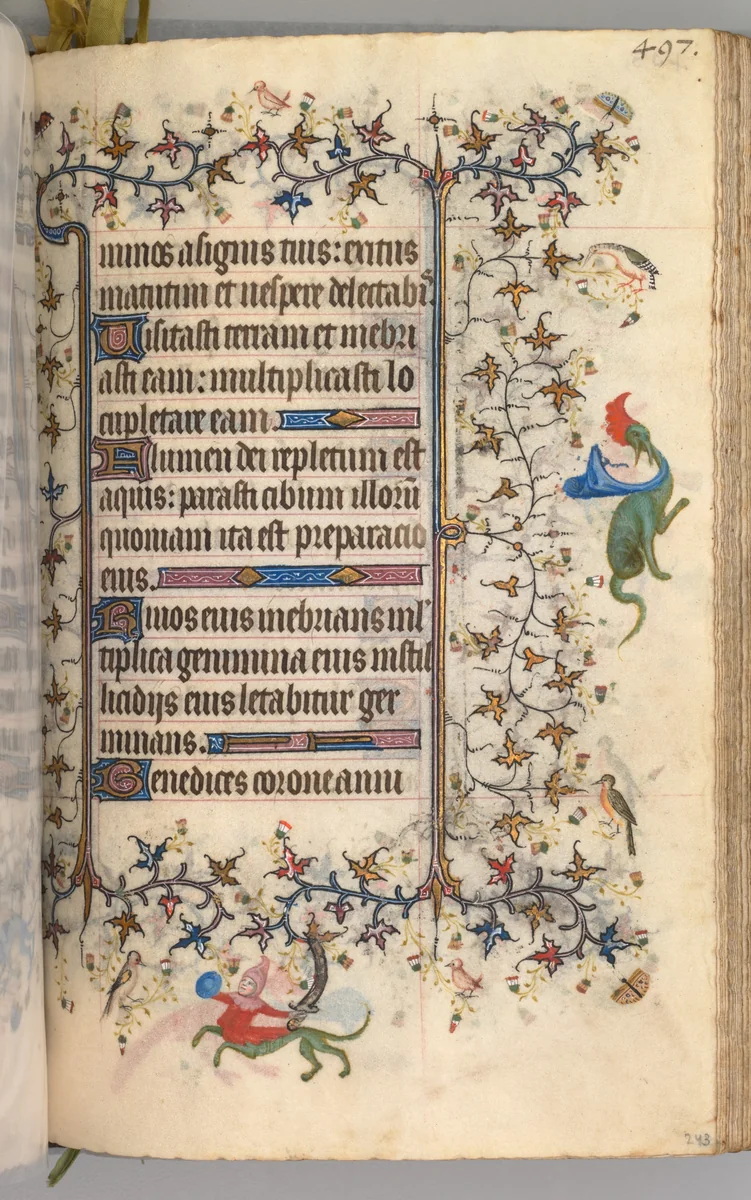 497.
minos a signis tuis: exitus
matutini et uespere delectabr̃
Uisitasti terram et inebri
asti eam: multiplicasti lo
cupletare eam.
Flumen dei repletum est
aquis: parasti cibum illorũ
quoniam ita est preparacio
eius.
Riuos eius inebrians ml̃
tiplica genimina eius in stil
licidijs eius letabitur ger
minans.
Benedices corone anni
243